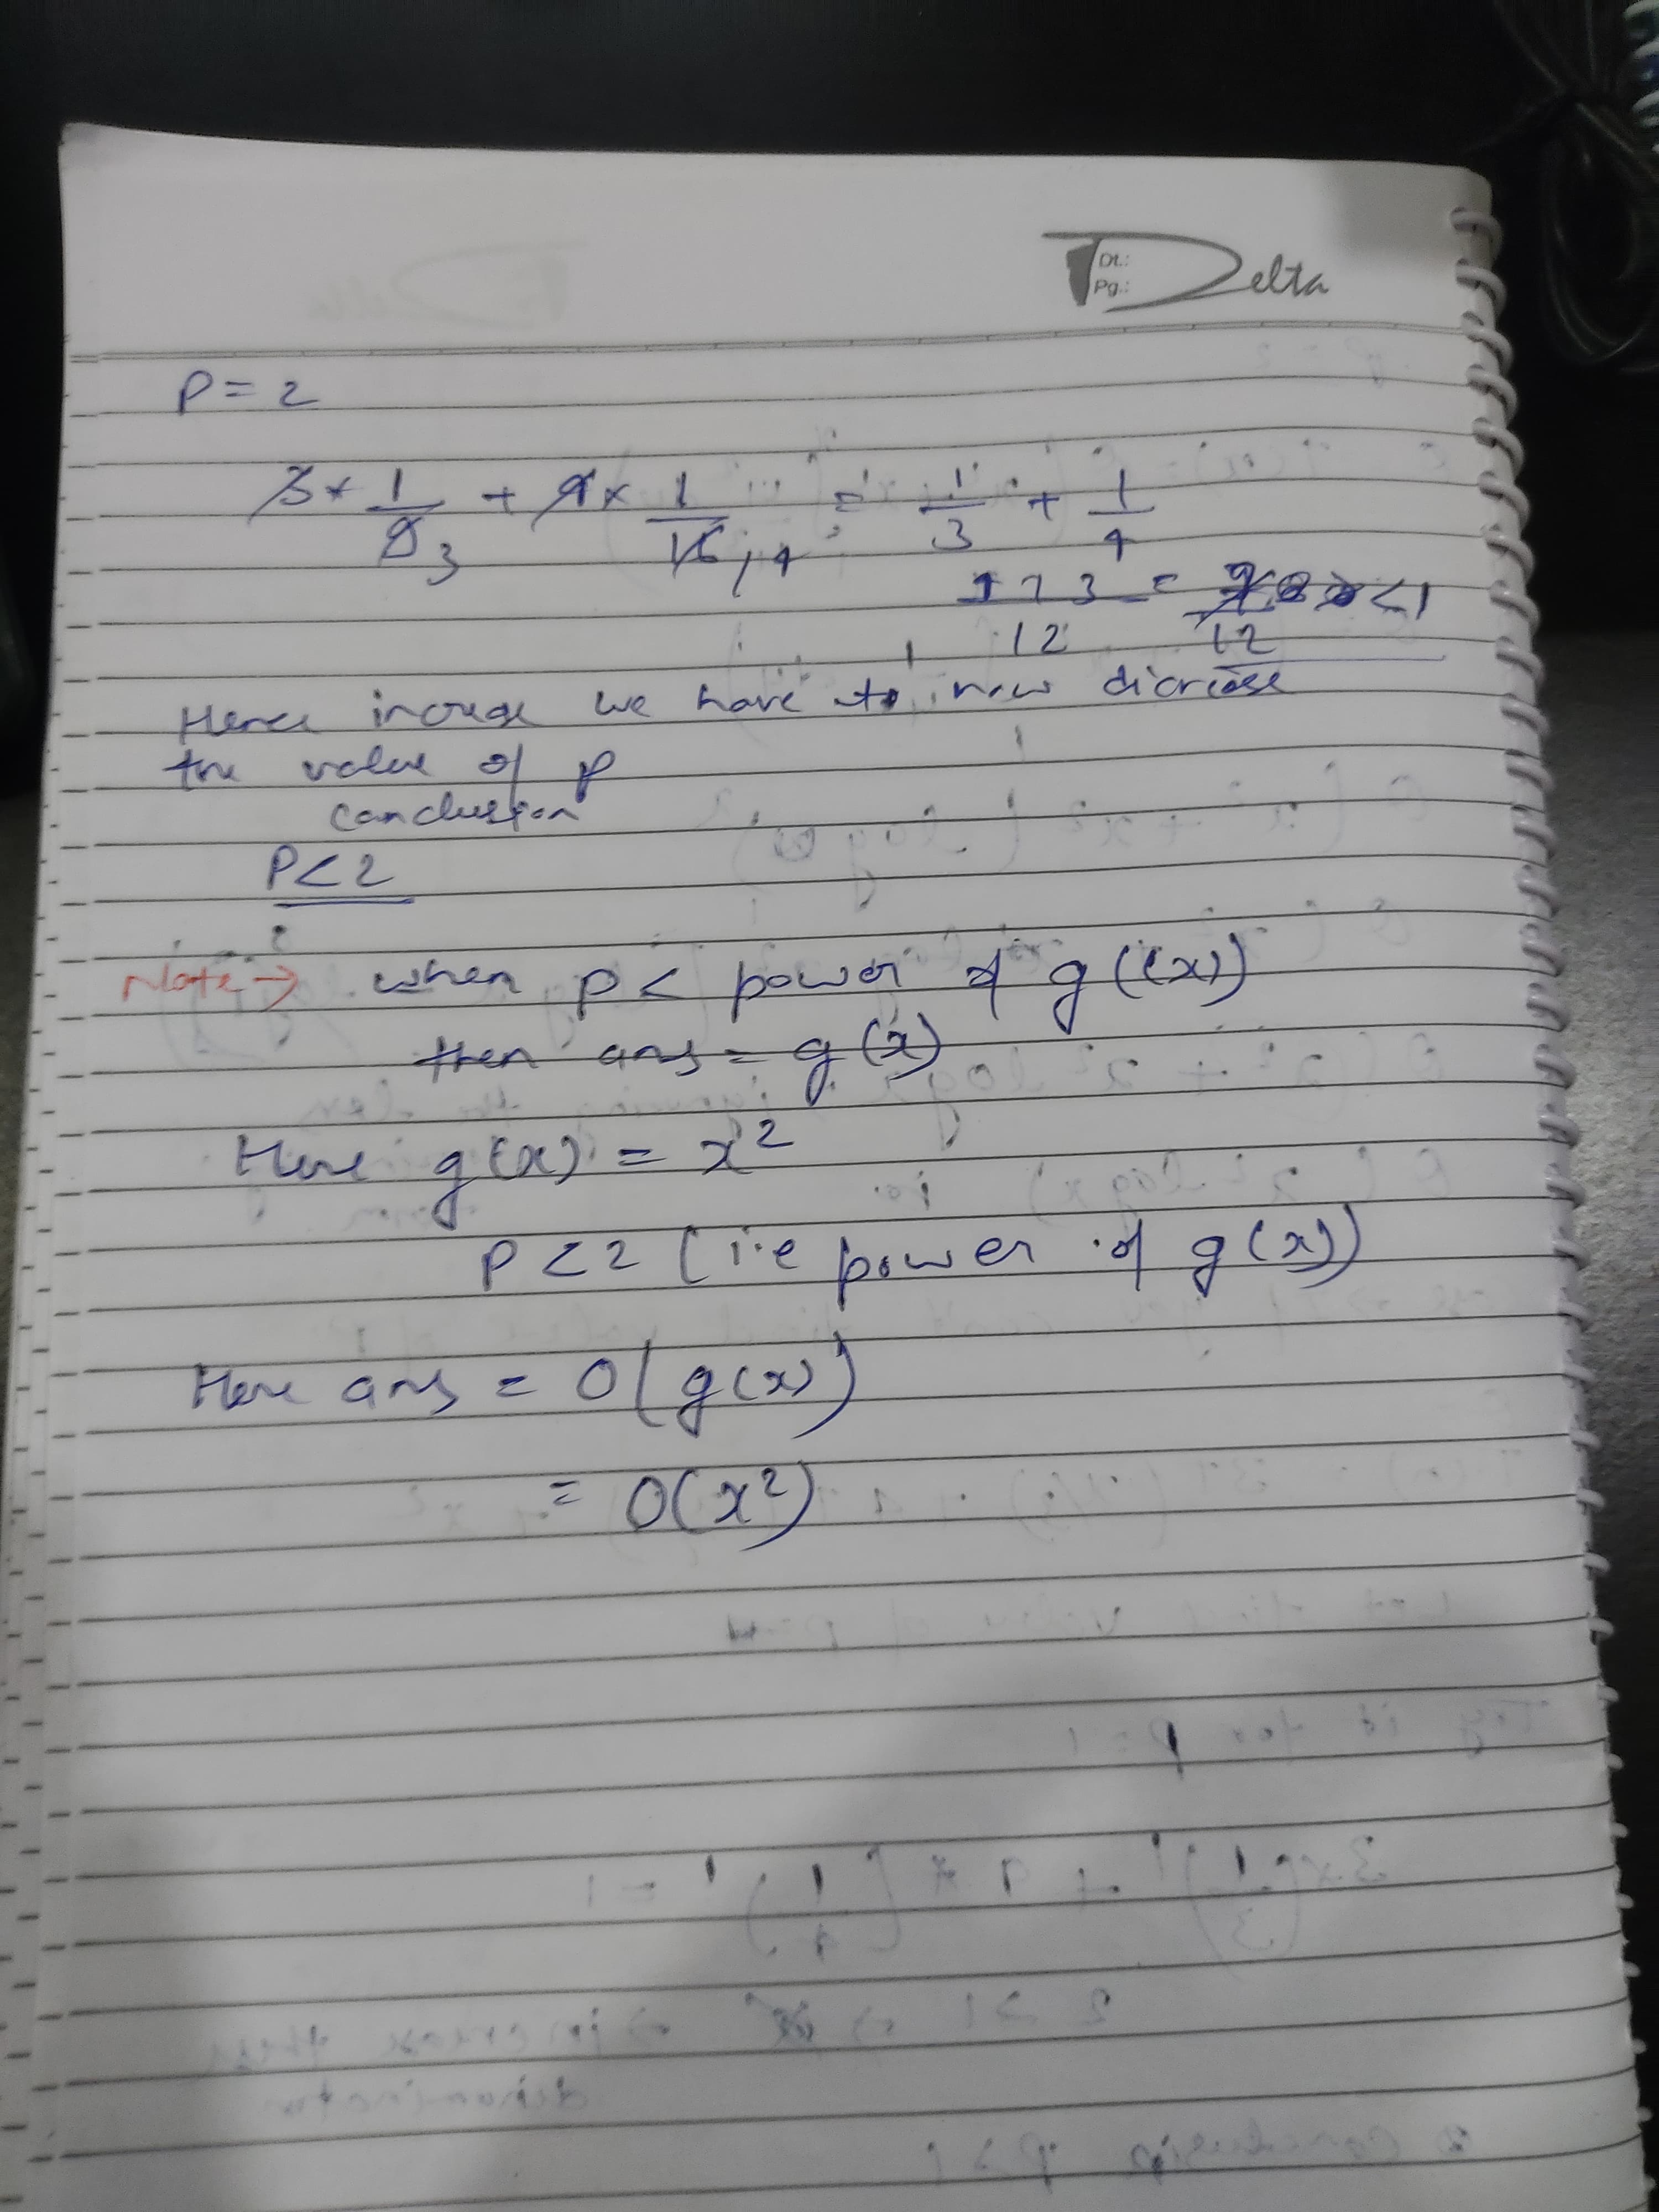 Dt.:
Pg.:
Delta
P = 2
3 * 1/9 3 + 4 x 1/16 , 4 = 1/3 + 1/4
+ 3 / 12 = / 12 < 1
Hence increase we have to now dicrease
the value of p
conclusion
P < 2
Note → when p < power of g((x))
then ans = g(x)
Here g(x) = x²
P < 2 (i.e power of g(x))
Here ans = O(g(x))
= O(x²)